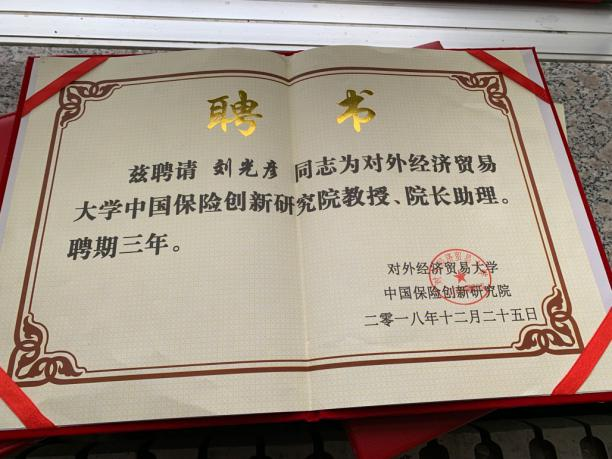 聘 书
兹聘请 刘光彦 同志为对外经济贸易
大学中国保险创新研究院教授、院长助理。
聘期三年。
对外经济贸易大学
中国保险创新研究院
二零一八年十二月二十五日